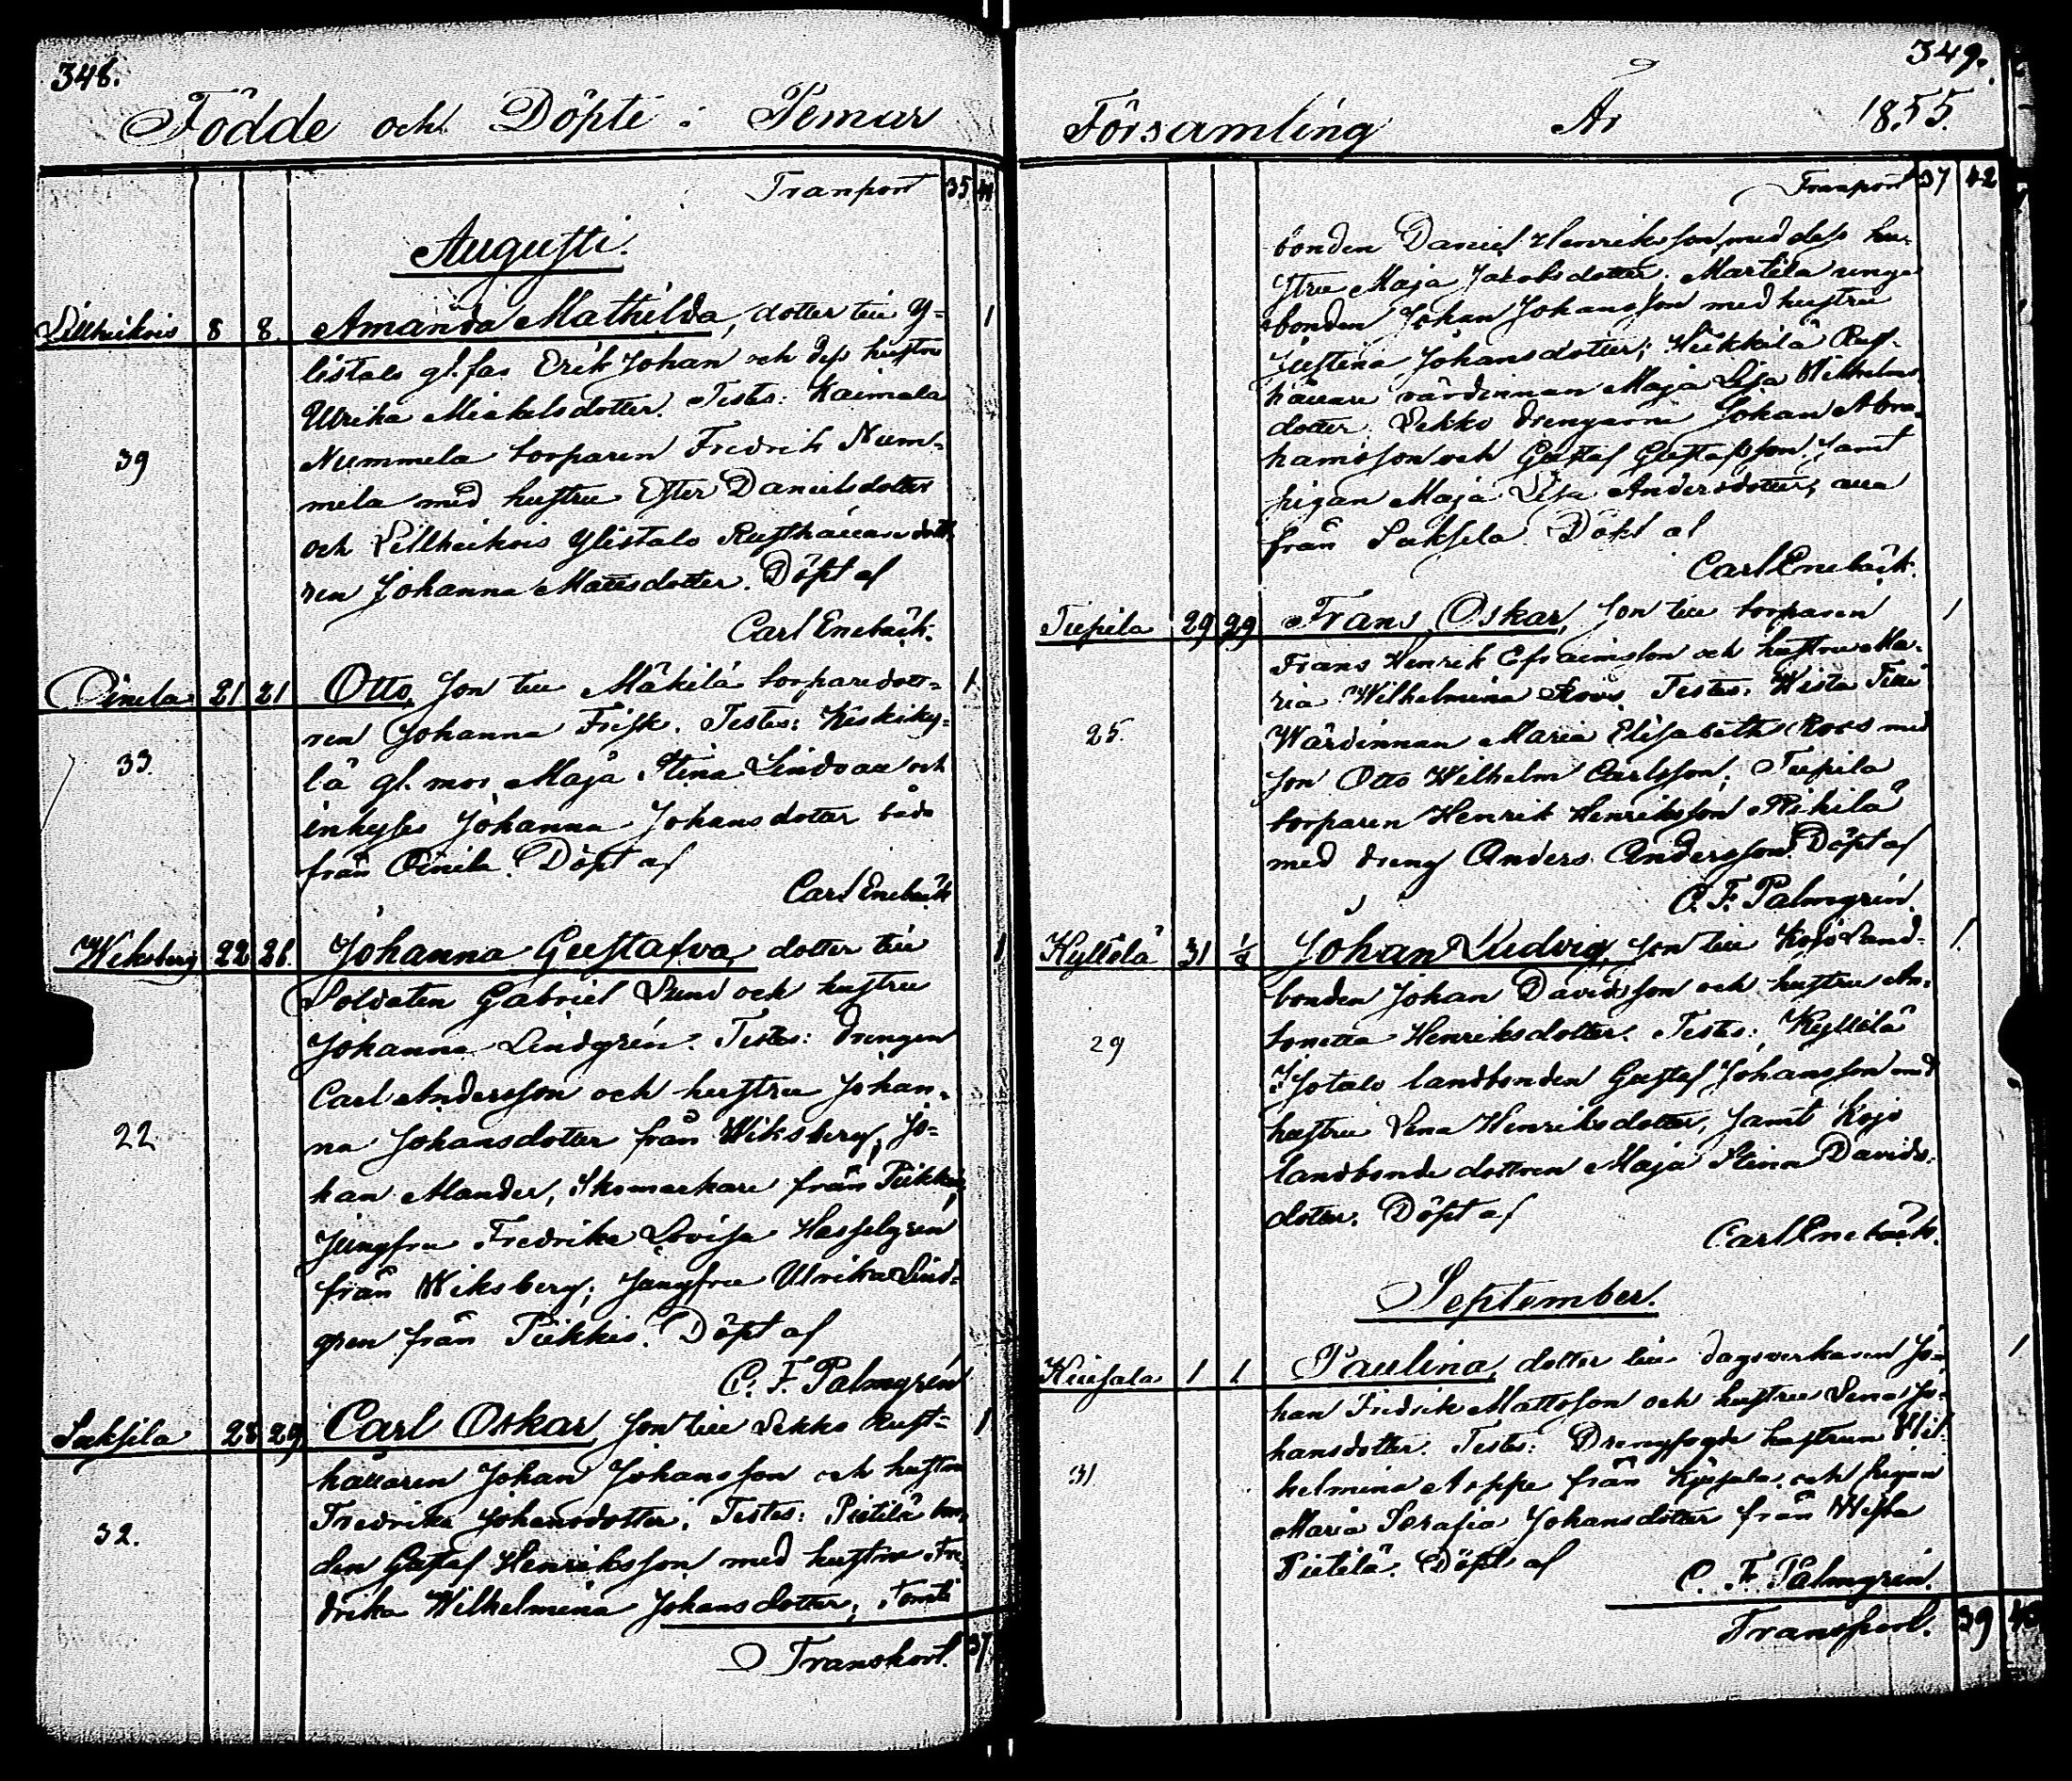 348.
Födde och Döpte i Pemar
Tranport 35 41
Augusti.
Lillheikois 8 8. Amanda Mathilda, dotter till Y=
listalo gl. far Erik Johan och dess hustru
Ulrika Mickelsdotter. Testes: Kaimala
39
Nummela torparen Fredrik Num=
mela med hustru Ester Danielsdotter
och Lillheikois Ylistalo Rusthållare dott
ren Johanna Mattsdotter. Döpt af
Carl Enebäck.
Oinila 21 21 Otto, son till Mäkilä torparedott=
ren Johanna Frisk. Testes: Keskiky=
33.
lä gl. mor Maja Stina Lindvall och
inhyses Johanna Johansdotter både
från Oinila. Döpt af
Carl Enebäck
Wiksberg 22 28. Johanna Gustafva, dotter till
Soldaten Gabriel Lund och hustru
Johanna Lindgrén. Testes: drengen
Carl Andersson och hustru Johan=
22
na Johansdotter från Wiksberg, Jo=
han Mander, Skomarkare från Pikkis,
Jungfru Fredrika Lovisa Hasselgren
från Wiksberg; Jungfru Ulrika Lind=
gren från Pikkis. Döpt af
C. F. Palmgrén
Suksela 28 29 Carl Oskar, son till Sekko Rust=
hållaren Johan Johansson och hustru
Fredrika Johansdotter. Testes: Pietilä bon
32.
den Gustaf Henriksson med hustru Fre
drika Wilhelmina Johansdotter;
Transport. 37
349.
Församling År 1855.
Transport 37 42
bonden Daniel Henriksson med dess hu=
stru Maja Jakobsdotter. Martila unge
bonden Johan Johansson med hustru
Justina Johansdotter; Heikkilä Rust=
hållare värdinnan Maja Lisa Wilhelms
dotter. Sekko drengarne Johan Abra=
hamsson och Gustaf Gustafsson, samt
pigan Maja Lisa Andersdotter, alla
från Suksela. Döpt af
Carl Enebäck.
29 29 Frans Oskar, son till torparen 1
Frans Henrik Efraimsson och hustru Ma=
ria Wilhelmina Roos. Testes: Wista
25.
Wärdinnan Maria Elisabeth Roos med
son Otto Wilhelm Carlsson;
torparen Henrik Henriksson
med dreng Anders Andersson. Döpt af
C. F. Palmgrén.
Kyllölä 31 Johan Ludvig, son till Kojo Land= 1.
bonden Johan Davidsson och hustru An=
tonetta Henriksdotter. Testes: Kyllölä
29
Isotalo landbonden Gustaf Johansson med
hustru Lena Henriksdotter, samt Kojo
landbonde dottren Maja Stina Davids=
dotter. Döpt af
Carl Enebäck.
September.
1 1 Paulina, dotter till dagsverkaren Jo= 1
han Fredrik Mattsson och hustru Lena Jo=
hansdotter. Testes: Drengfogde hustrun Wil=
31.
helmina Aoppe från och pigan
Maria Serafia Johansdotter från Wista
Pietilä. Döpt af
C. F. Palmgrén.
Transport. 39